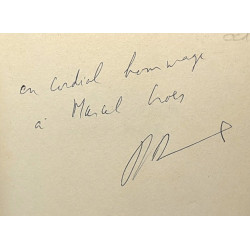 en cordial hommage
à Marcel Croës